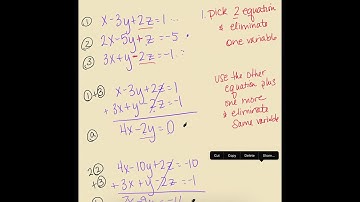 ① x-3y+2z=1
② 2x-5y+z=-5
③ 3x+y-2z=-1
1. Pick 2 equation
& eliminate
one variable
①+③ x-3y+2z=1
+3x+y-2z=-1
ⓐ 4x-2y=0
use the other
equation plus
one more
& eliminate
same variable
Cut Copy Delete
2② 4x-10y+2z=-10
+③ +3x+y-2z=-1